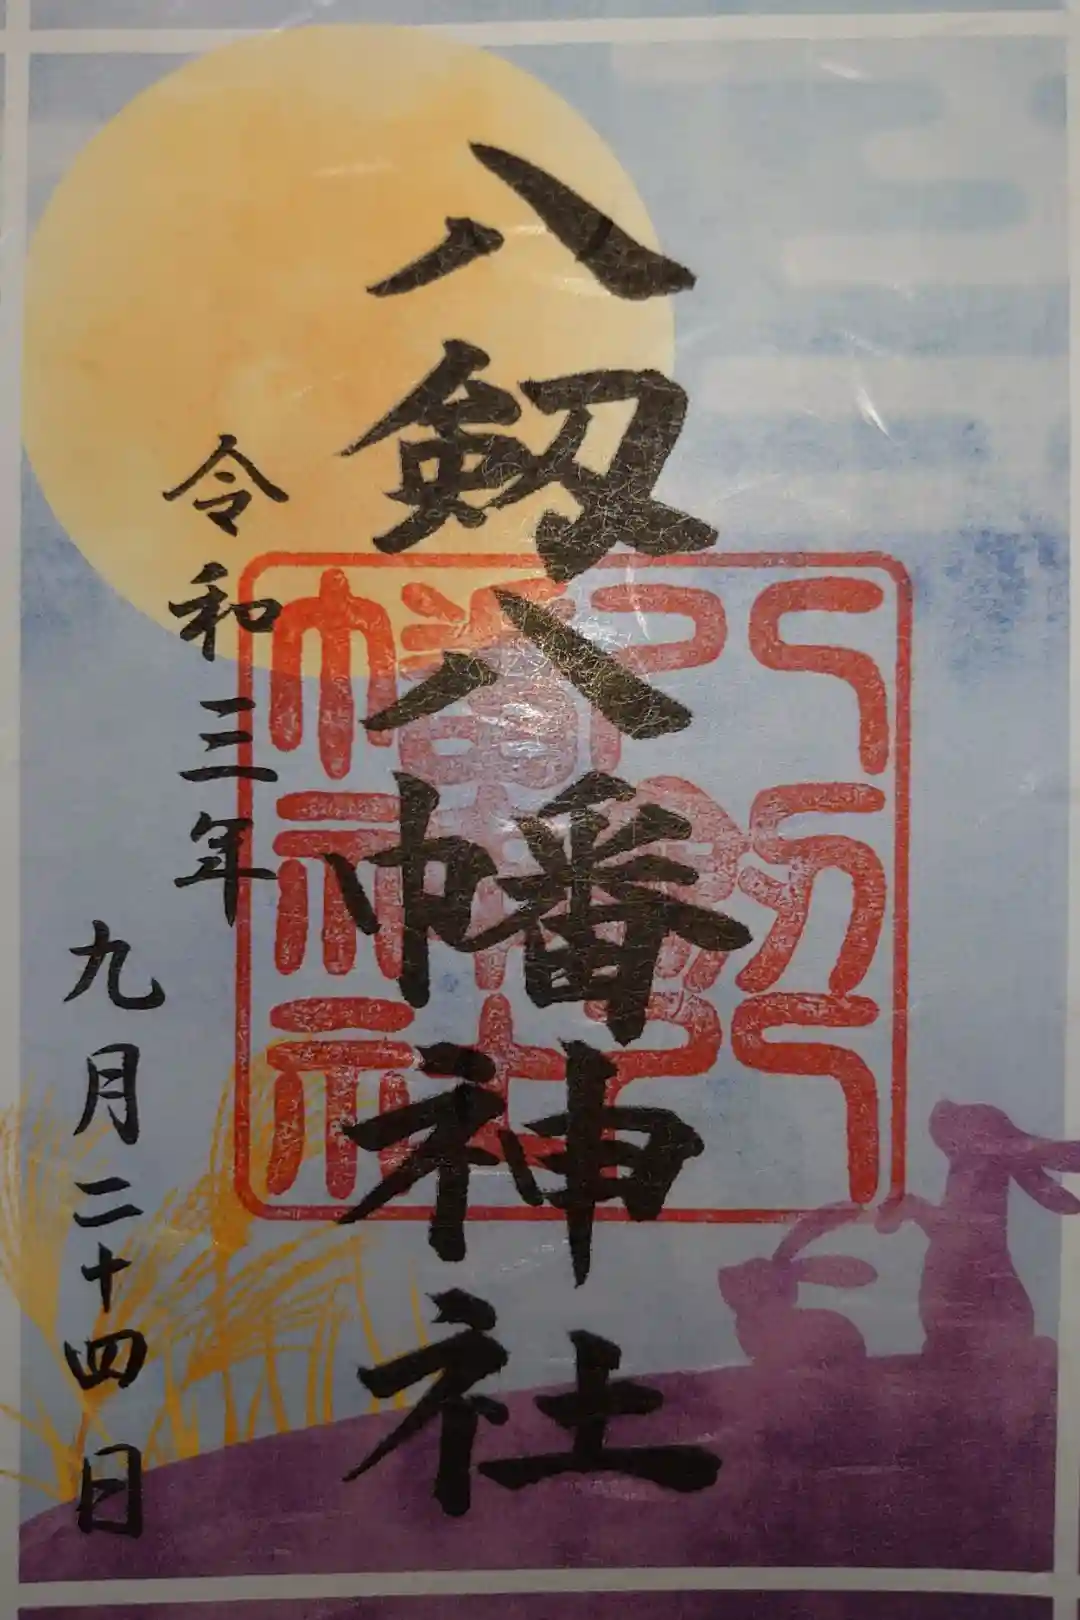 八剱八幡神社
令和三年
九月二十四日
八剱八幡神社